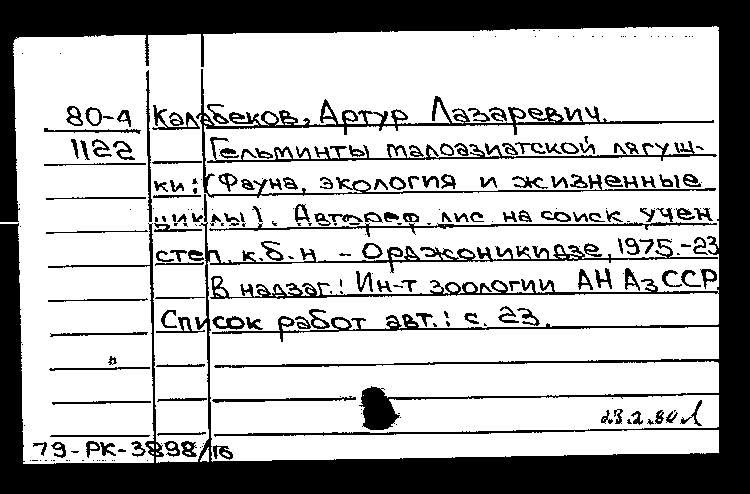 80-4 Калабеков, Артур Лазаревич.
1122 Гельминты малоазиатской лягуш-
ки: (Фауна, экология и жизненные
циклы). Автореф. дис. на соиск учен.
степ. к.б.н. - Орджоникидзе, 1975.-23
В надзаг.: Ин-т зоологии АН АзССР.
Список работ авт.: с. 23.
23.2.80
79-РК-3898/16